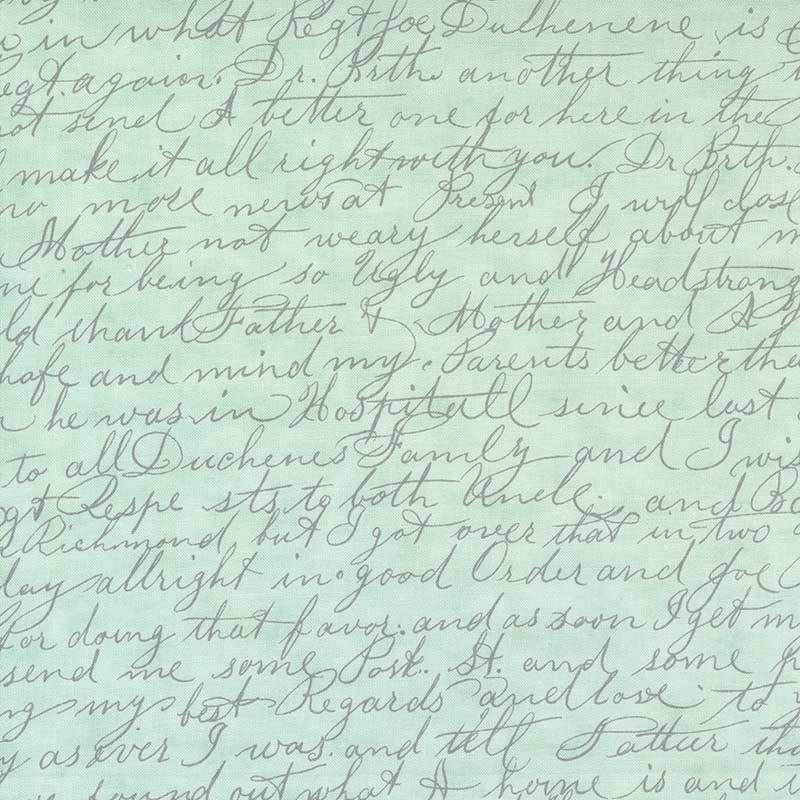 in what Regt Joe Dulhenene is
Regt. again. Dr. Brth. another thing
not send A better one for here in the
make it all right with you. Dr Brth.
no more news at Present I will close
Mother not weary herself about m
me for being so Ugly and Headstrong
ld thank Father & Mother and A
hafe and mind my. Parents better tha
he was in Hospitall since last
to all Duchenes Family and I wis
gt Respe sts to both Uncle. and
Richmond, but I got over that in two
day allright in good Order and Joe
for doing that favor. and as soon I get m
send me some Post. St. and some p
ng my best Regards and love to
y as ever I was. and tell tha
found out what A home is and i